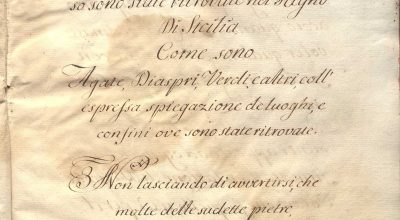 so sono state ritrovate nel Regno
Di Sicilia
Come sono
Agate, Diaspri, Verdi, ed altri, coll'
espressa spiegazione de luoghi, e
confini ove sono state ritrovate.
Non lasciando di avvertirsi, che
molte delle sudette pietre